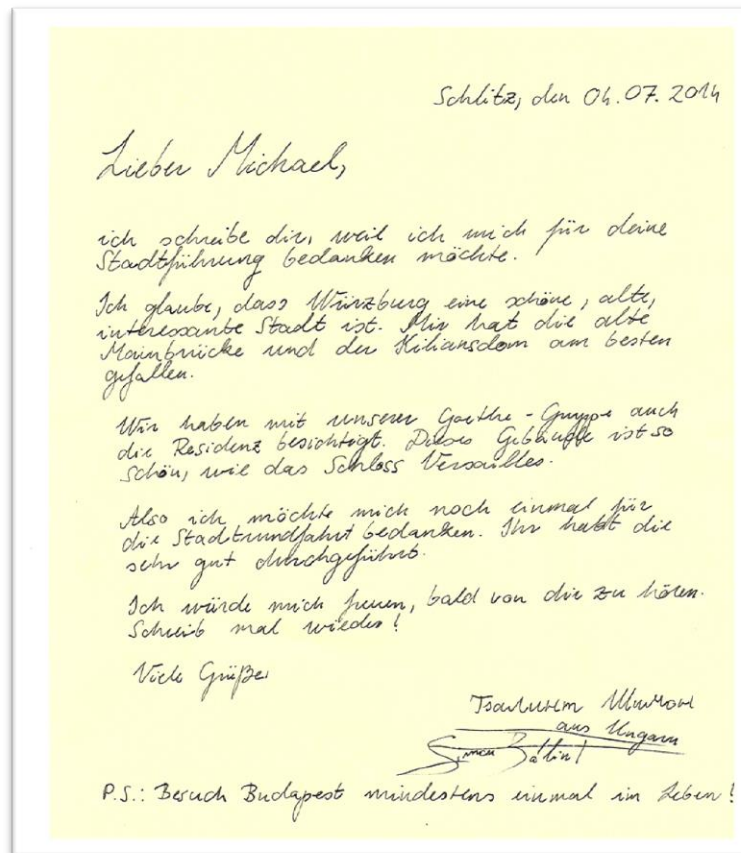 Schlitz, den 04.07.2014
Lieber Michael,
ich schreibe dir, weil ich mich für deine
Stadtführung bedanken möchte.
Ich glaube, dass Würzburg eine schöne, alte,
interessante Stadt ist. Mir hat die alte
Mainbrücke und der Kiliansdom am besten
gefallen.
Wir haben mit unserer Goethe-Gruppe auch
die Residenz besichtigt. Dieses Gebäude ist so
schön, wie das Schloss Versailles.
Also ich möchte mich noch einmal für
die Stadtrundfahrt bedanken. Ihr habt die
sehr gut durchgeführt.
Ich würde mich freuen, bald von dir zu hören.
Schreib mal wieder!
Viele Grüße
aus Ungarn
Simon Bálint
P.S.: Besuch Budapest mindestens einmal im Leben!